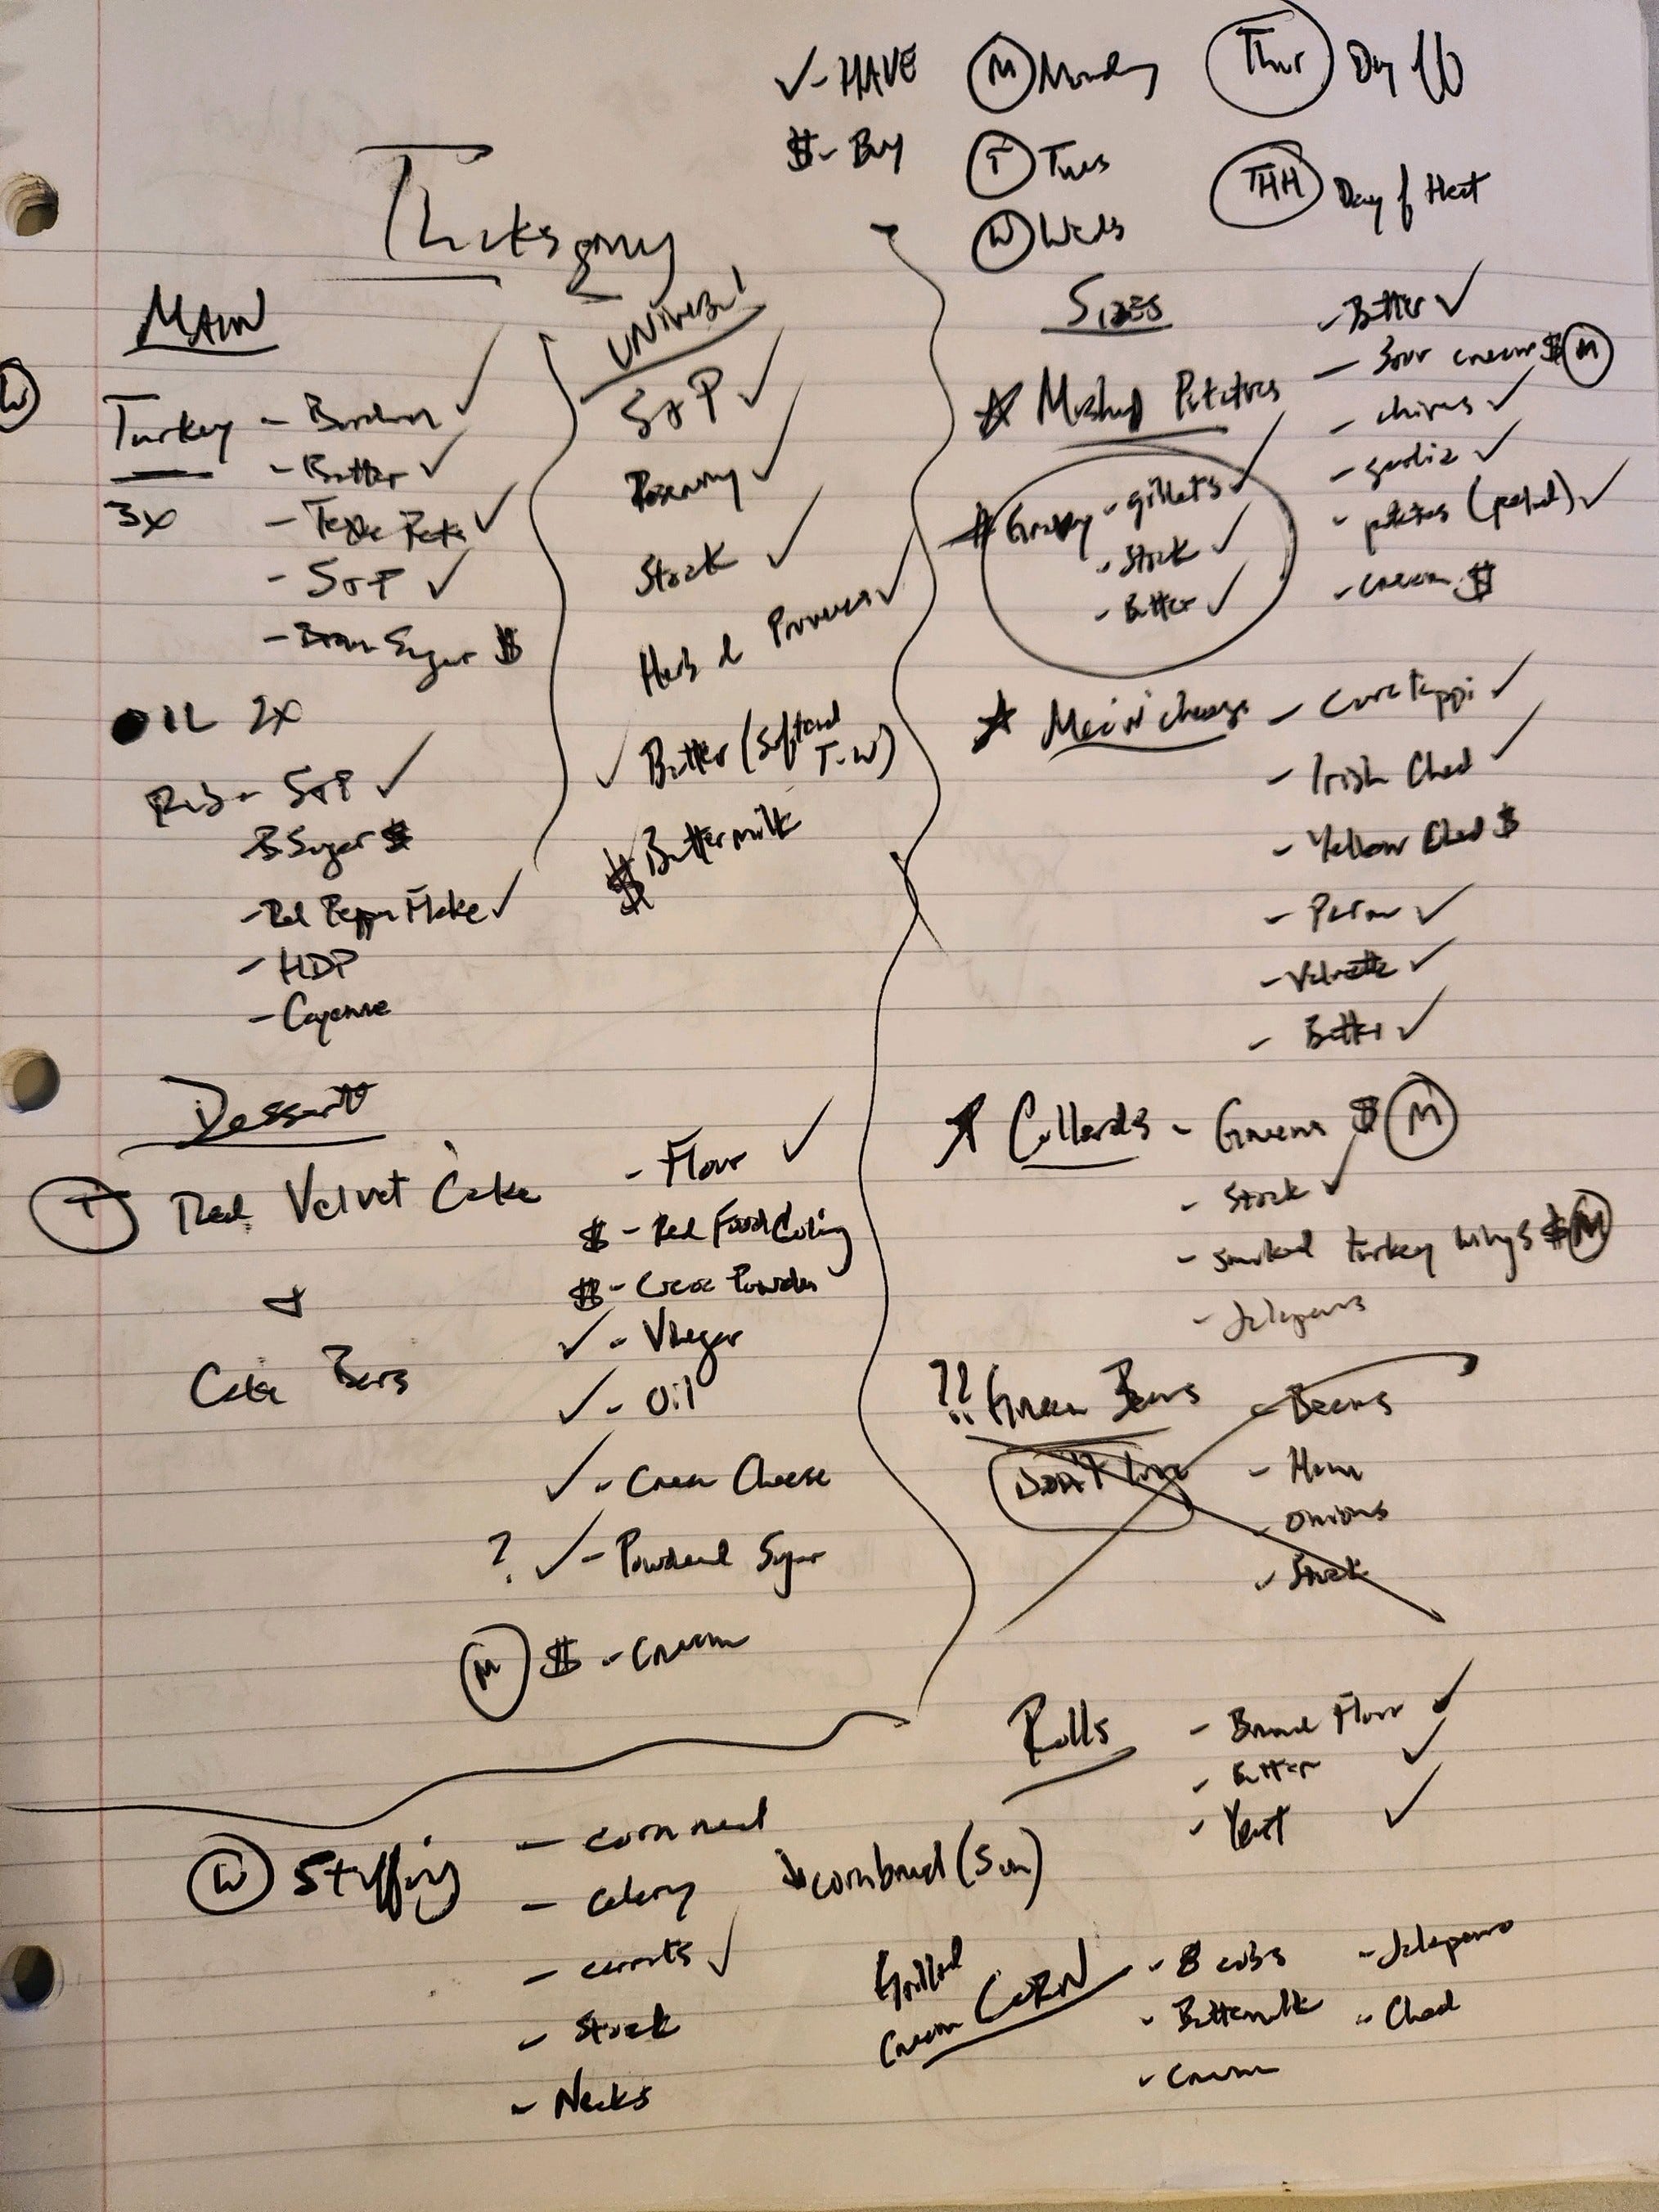 ✓ - HAVE
$ - Buy
(M) Monday
(T) Tues
(W) Weds
(Thur) Day Of
(THH) Day of Heat
Thanksgiving
MAIN
(W)
Turkey - ✓
3x
- Butter ✓
- ✓
- S+P ✓
- Brown Sugar $
OIL 2x
Rub - S+P ✓
B Sugar $
- Red Pepper Flake ✓
- HDP
- Cayenne
UNiversal
S+P ✓
Rosemary ✓
Stock ✓
Herb d Provence ✓
✓ Butter (softend
T-W)
$ Buttermilk
Sides
☆ Mashed Potatoes
- Butter ✓
- Sour cream $ (M)
- chives ✓
- garlic ✓
- potatoes (peeled) ✓
- cream $
Gravy - giblets ✓
- Stock ✓
- Butter ✓
☆ Mac n' cheese - Cavatappi ✓
- Irish Ched ✓
- Yellow Ched $
- Parm ✓
- Velveeta ✓
- Butter ✓
☆ Collards - Greens $ (M)
- Stock ✓
- smoked turkey wings $ (M)
- Jalapenos
?? Green Beans - Beans
Don't love
- Ham
- onions
- Stock
Rolls - Bread Flour ✓
- Butter ✓
- Yeast ✓
Dessert
(T) Red Velvet Cake
+
Cake Bars
- Flour ✓
$ - Red Food Coloring
$ - Cocoa Powder
✓ - Vinegar
✓ - Oil
✓ - Cream Cheese
? ✓ - Powdered Sugar
(M) $ - Cream
(W) Stuffing - corn meal
- celery
- carrots ✓
- Stock
- Necks
cornbread (Sun)
Grilled
Cream CORN
- 8 cobs
- Buttermilk
- Cream
- Jalapeno
- Ched